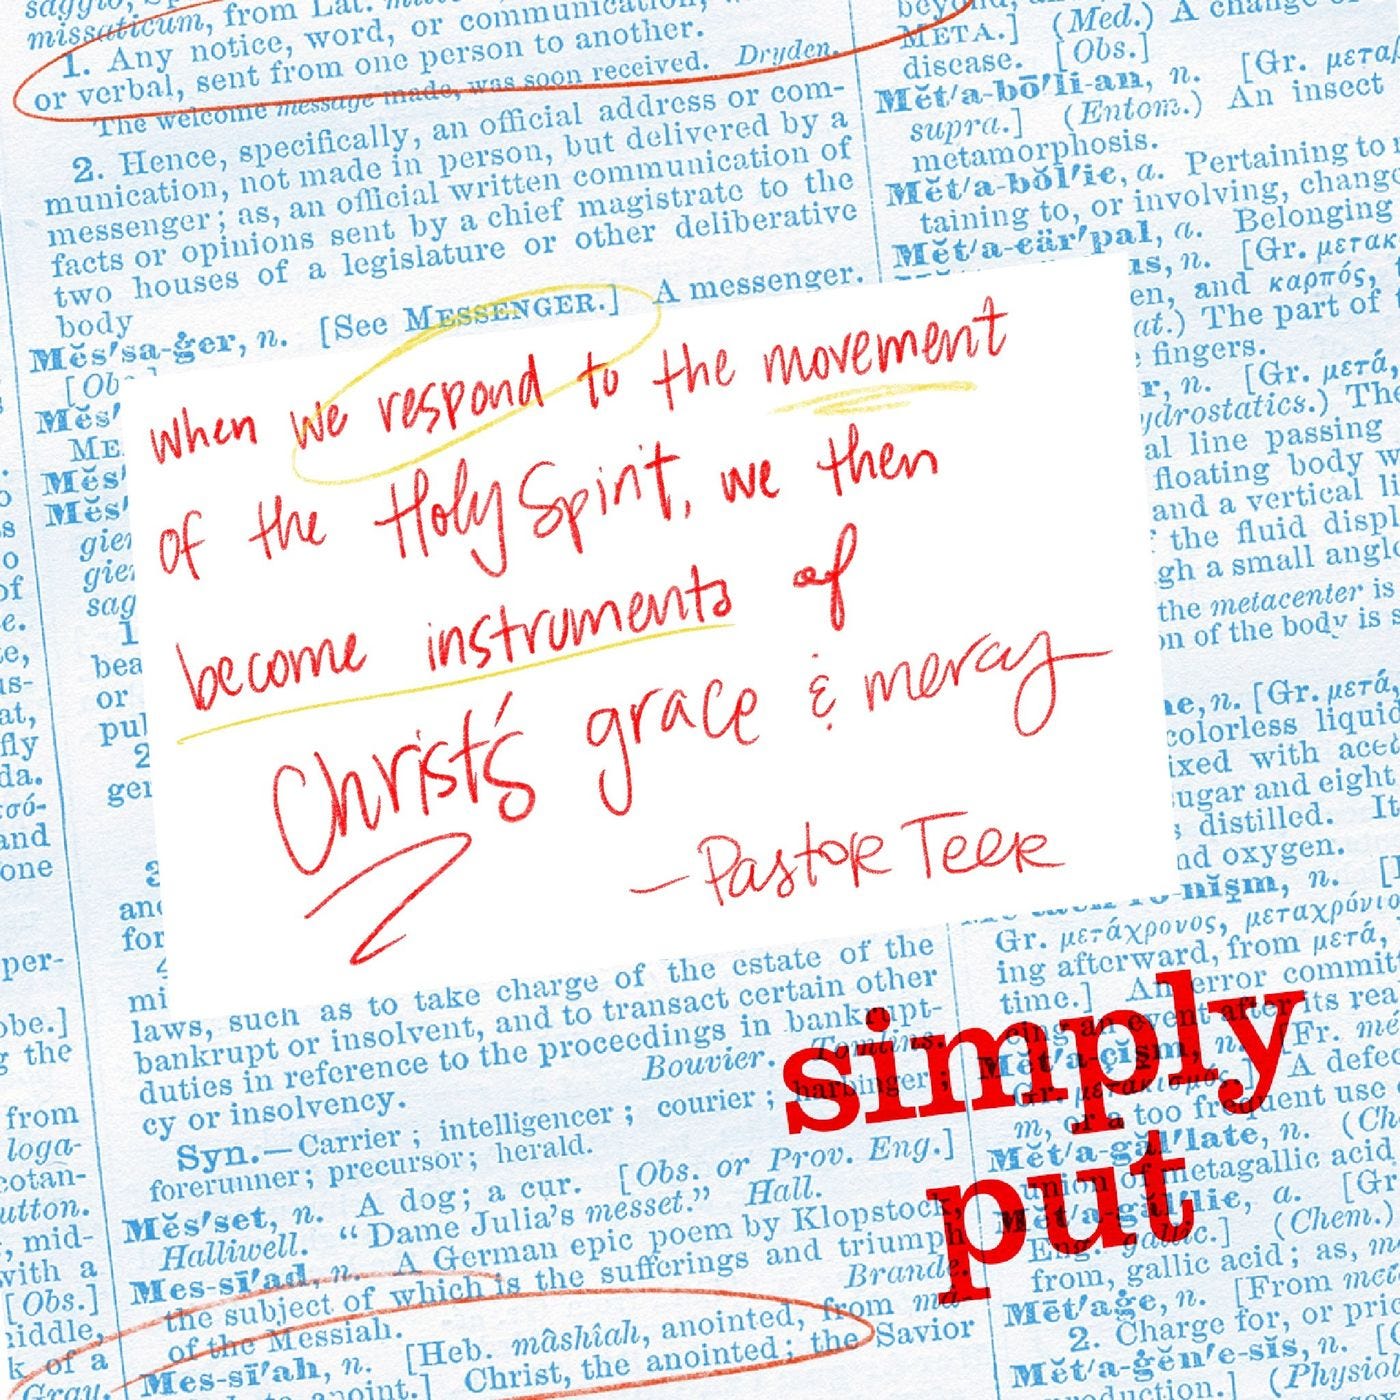 missaticum, from Lat.
1. Any notice, word, or communication,
or verbal, sent from one person to another.
The welcome message made, was soon received. Dryden.
2. Hence, specifically, an official address or com-
munication, not made in person, but delivered by a
messenger; as, an official written communication of
facts or opinions sent by a chief magistrate to the
two houses of a legislature or other deliberative
body
Mĕs′sa-ġer, n. [See MESSENGER.] A messenger.
when we respond to the movement
of the Holy Spirit, we then
become instruments of
Christ's grace & mercy
- Pastor Teer
laws, such as to take charge of the estate of the
bankrupt or insolvent, and to transact certain other
duties in reference to the proceedings in bankrupt-
cy or insolvency. Bouvier. Tomlins.
Syn.—Carrier; intelligencer; courier; harbinger;
forerunner; precursor; herald.
Mĕs′set, n. A dog; a cur. [Obs. or Prov. Eng.]
Halliwell. “Dame Julia’s messet.” Hall.
Mes-sī′ad, n. A German epic poem by Klopstock,
the subject of which is the sufferings and triumph
of the Messiah. Brande.
Mes-sī′ah, n. [Heb. mâshîah, anointed, from
anoint.] Christ, the anointed; the Savior
META.] (Med.) A change
disease. [Obs.]
Mĕt′a-bō′li-an, n. [Gr.
supra.] (Entom.) An insect
metamorphosis.
Mĕt′a-bŏl′ie, a. Pertaining to
taining to, or involving, change
Mĕt′a-cär′pal, a. Belonging
n. [Gr.
en, and καρπός,
The part of
fingers.
n. [Gr. μετά,
ydrostatics.) The
al line passing
floating body
and a vertical
the fluid
gh a small
the metacenter is
on of the body is
n. [Gr. μετά,
colorless liquid
ixed with
sugar and eight
distilled. It
nd oxygen.
n.
Gr. μετάχρονος,
ing afterward, from μετά,
time.] An error
cing an event after its
simply
put
Mĕt′a-çĭsm, n. [Fr.
Gr. μετακισμός.] A
m, or a too frequent use
Mĕt′a-găl′late, n.
union of metagallic acid
Mĕt′a-găl′lie, a. [Gr.
Eng. gallic.] (Chem.)
from, gallic acid; as,
Mēt′aġe, n. [From
2. Charge for, or
Mĕt′a-ġĕn′e-sĭs, n.